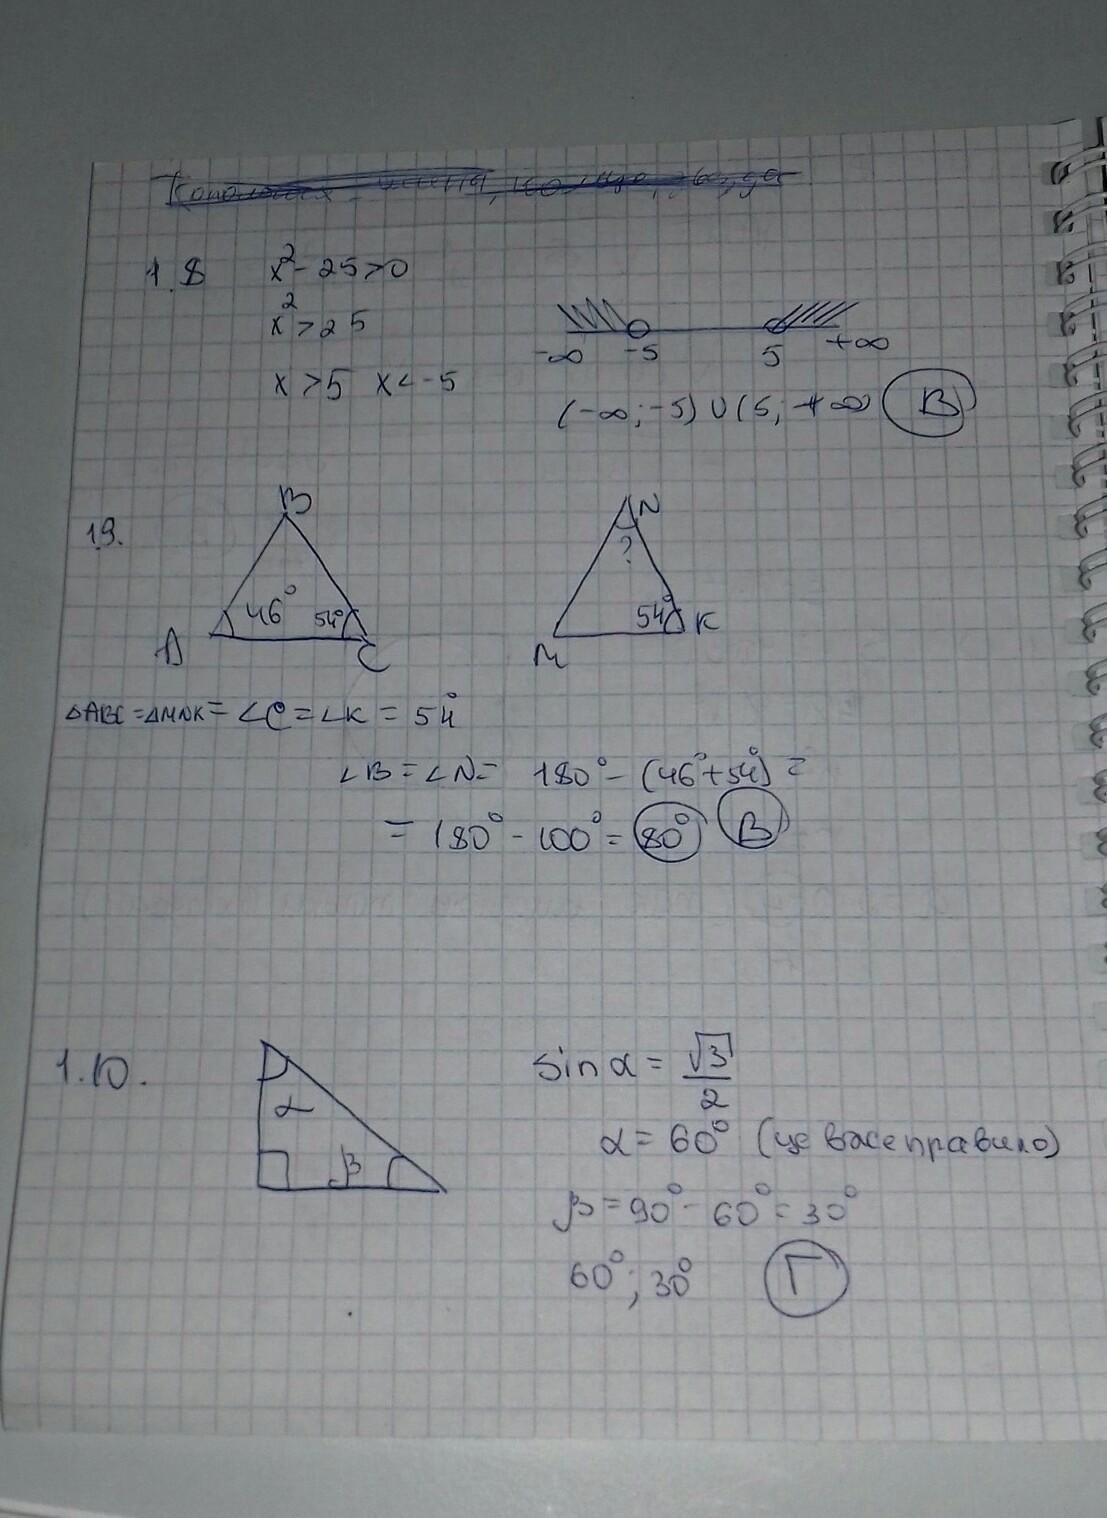 1.8 x²-25>0
x²>25
x>5 x<-5
-∞ -5 5 +∞
(-∞;-5)∪(5;+∞) В
19.
B
46° 54°
A C
N
?
54° K
M
△ABC=△MNK=∠C=∠K=54°
∠B=∠N= 180°-(46°+54°)=
=180°-100°=80° В
1.10.
α
β
sin α = √3/2
α=60° (це восе правило)
β=90°-60°=30°
60°;30° Г